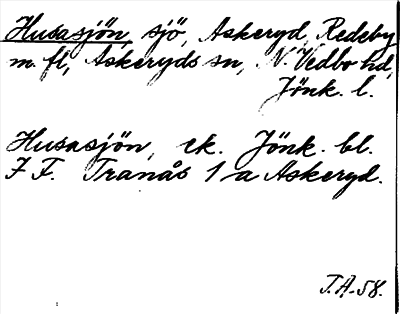 Husasjön, sjö, Askeryd, Redeby
m. fl, Askeryds sn, N. Vedbo hd,
Jönk. l.
Husasjön, ek. Jönk. bl.
7 F. Tranås 1 a Askeryd.
T.A.-58.